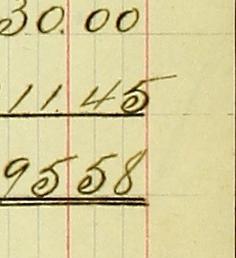 30.00
11.45
95 58